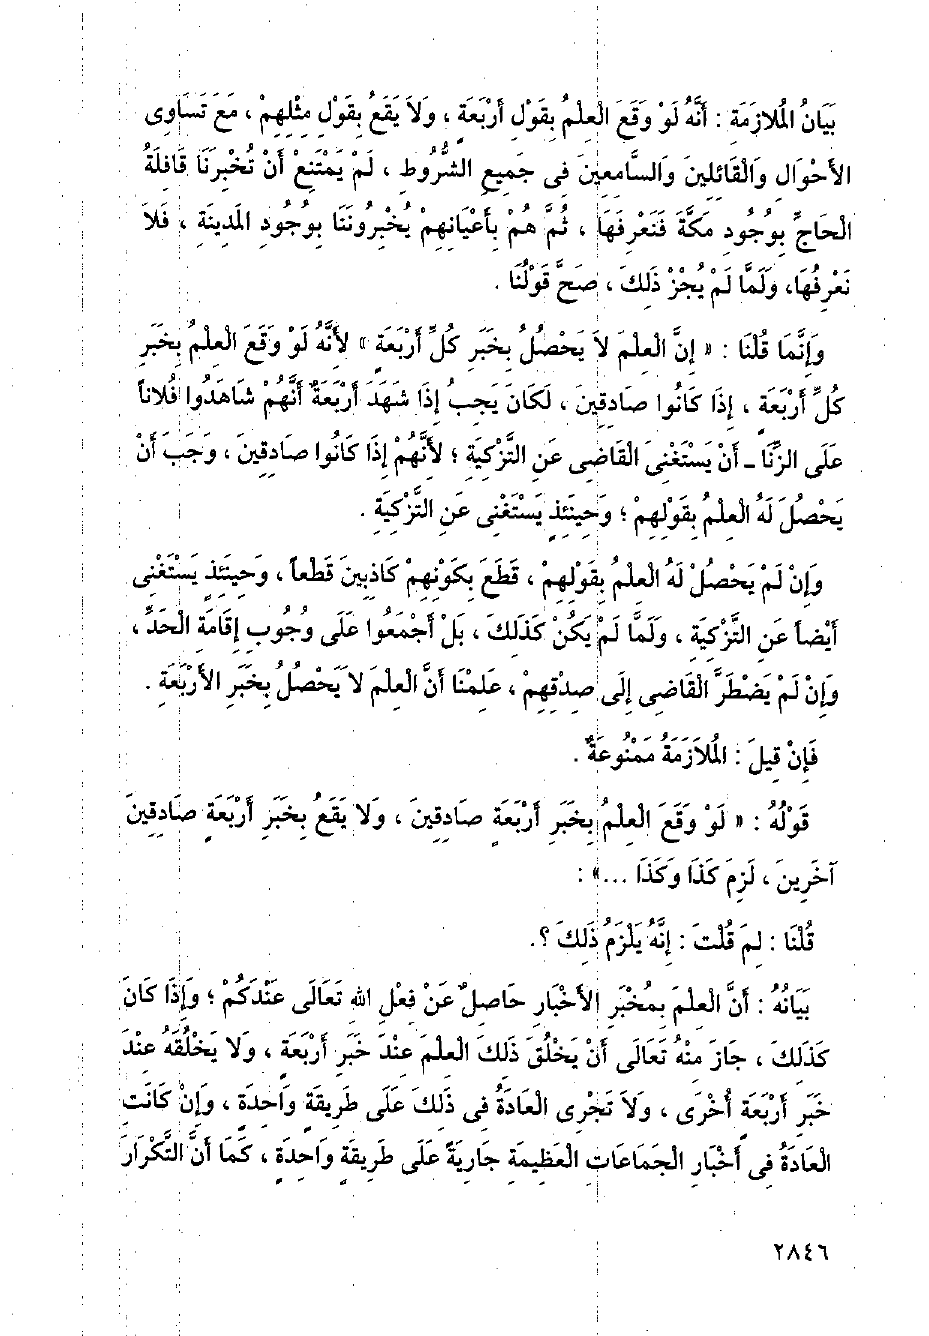 بَيَانُ الْمُلازَمَةِ : أَنَّهُ لَوْ وَقَعَ الْعِلْمُ بِقَوْلِ أَرْبَعَةٍ ، وَلاَ يَقَعُ بِقَوْلِ مِثْلِهِمْ ، مَعَ تَسَاوِى
الأَحْوَالِ وَالْقَائِلِينَ وَالسَّامِعِينَ فِى جَمِيعِ الشُّرُوطِ ، لَمْ يَمْتَنِعْ أَنْ تُخْبِرَنَا قَافِلَةُ
الْحَاجِّ بِوُجُودِ مَكَّةَ فَنَعْرِفَهَا ، ثُمَّ هُمْ بِأَعْيَانِهِمْ يُخْبِرُونَنَا بِوُجُودِ الْمَدِينَةِ ، فَلاَ
نَعْرِفُهَا، وَلَمَّا لَمْ يُجْزْ ذَلِكَ ، صَحَّ قَوْلُنَا .
وَإِنَّمَا قُلْنَا : « إِنَّ الْعِلْمَ لاَ يَحْصُلُ بِخَبَرِ كُلِّ أَرْبَعَةٍ » لأَنَّهُ لَوْ وَقَعَ الْعِلْمُ بِخَبَرِ
كُلِّ أَرْبَعَةٍ ، إِذَا كَانُوا صَادِقِينَ ، لَكَانَ يَجِبُ إِذَا شَهِدَ أَرْبَعَةٌ أَنَّهُمْ شَاهَدُوا فُلاناً
عَلَى الزِّنَا ـ أَنْ يَسْتَغْنِىَ الْقَاضِى عَنِ التَّزْكِيَةِ ؛ لأَنَّهُمْ إِذَا كَانُوا صَادِقِينَ ، وَجَبَ أَنْ
يَحْصُلَ لَهُ الْعِلْمُ بِقَوْلِهِمْ ؛ وَحِينَئِذٍ يَسْتَغْنِى عَنِ التَّزْكِيَةِ .
وَإِنْ لَمْ يَحْصُلْ لَهُ الْعِلْمُ بِقَوْلِهِمْ ، قَطَعَ بِكَوْنِهِمْ كَاذِبِينَ قَطْعاً ، وَحِينَئِذٍ يَسْتَغْنِى
أَيْضاً عَنِ التَّزْكِيَةِ ، وَلَمَّا لَمْ يَكُنْ كَذَلِكَ ، بَلْ أَجْمَعُوا عَلَى وُجُوبِ إِقَامَةِ الْحَدِّ ،
وَإِنْ لَمْ يَضْطَرَّ الْقَاضِى إِلَى صِدْقِهِمْ ، عَلِمْنَا أَنَّ الْعِلْمَ لاَ يَحْصُلُ بِخَبَرِ الأَرْبَعَةِ .
فَإِنْ قِيلَ : الْمُلاَزَمَةُ مَمْنُوعَةٌ .
قَوْلُهُ : « لَوْ وَقَعَ الْعِلْمُ بِخَبَرِ أَرْبَعَةٍ صَادِقِينَ ، وَلا يَقَعُ بِخَبَرِ أَرْبَعَةٍ صَادِقِينَ
آخَرِينَ ، لَزِمَ كَذَا وَكَذَا ...» :
قُلْنَا : لِمَ قُلْتَ : إِنَّهُ يَلْزَمُ ذَلِكَ ؟.
بَيَانُهُ : أَنَّ الْعِلْمَ بِمُخْبَرِ الأَخْبَارِ حَاصِلٌ عَنْ فِعْلِ اللهِ تَعَالَى عَنْدَكُمْ ؛ وَإِذَا كَانَ
كَذَلِكَ ، جَازَ مِنْهُ تَعَالَى أَنْ يَخْلُقَ ذَلِكَ الْعِلْمَ عِنْدَ خَبَرِ أَرْبَعَةٍ ، وَلا يَخْلُقَهُ عِنْدَ
خَبَرِ أَرْبَعَةٍ أُخْرَى ، وَلاَ تَجْرِى الْعَادَةُ فِى ذَلِكَ عَلَى طَرِيقَةٍ وَاحِدَةٍ ، وَإِنْ كَانَتِ
الْعَادَةُ فِى أَخْبَارِ الْجَمَاعَاتِ الْعَظِيمَةِ جَارِيَةً عَلَى طَرِيقَةٍ وَاحِدَةٍ ، كَمَا أَنَّ التَّكْرَارَ
٢٨٤٦